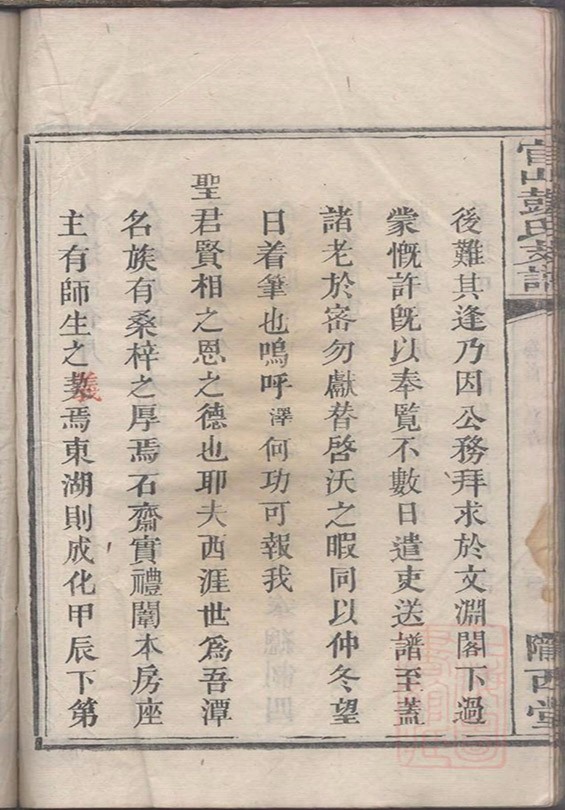 官山彭氏支譜
隴西堂
後難其逢乃因公務拜求於文淵閣下過
蒙慨許旣以奉覧不數日遣吏送譜至蓋
諸老於密勿獻替啓沃之暇同以仲冬望
日着筆也嗚呼澤何功可報我
聖君賢相之恩之德也耶夫西涯世爲吾潭
名族有桑梓之厚焉石齋實禮闈本房座
主有師生之義焉東湖則成化甲辰下第